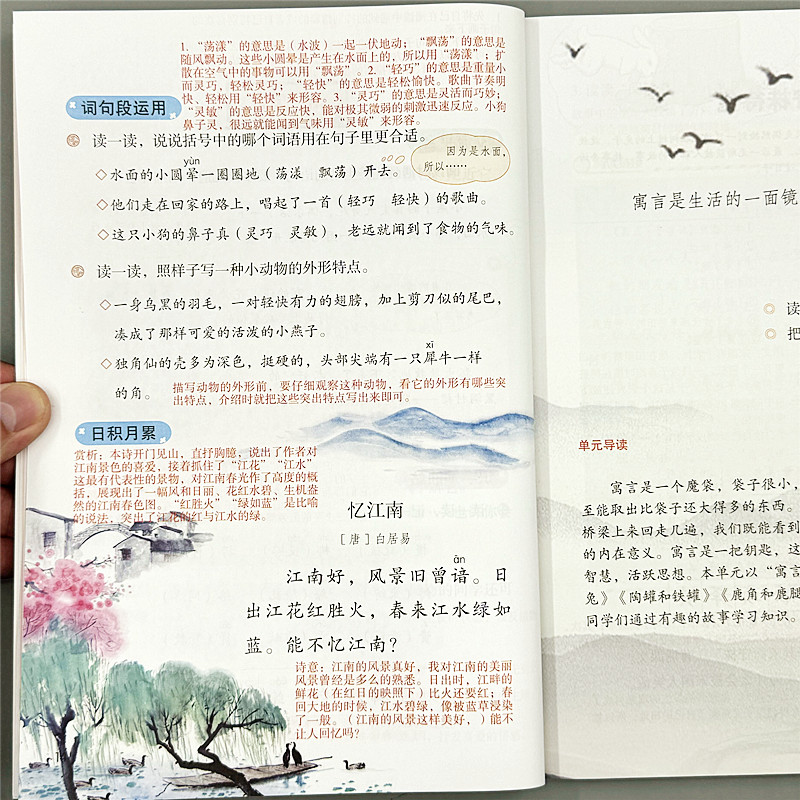 1. “荡漾”的意思是（水波）一起一伏地动；“飘荡”的意思是
随风飘动。这些小圆晕是产生在水面上的，所以用“荡漾”；扩
散在空气中的事物可以用“飘荡”。2. “轻巧”的意思是重量小
而灵巧，轻松灵巧；“轻快”的意思是轻松愉快。歌曲节奏明
快，轻松用“轻快”来形容。3. “灵巧”的意思是灵活而巧妙；
“灵敏”的意思是反应快，能对极其微弱的刺激迅速反应。小狗
鼻子灵，很远就能闻到气味用“灵敏”来形容。
词句段运用
读一读，说说括号中的哪个词语用在句子里更合适。
因为是水面，
所以……
yùn
◇水面的小圆晕一圈圈地（荡漾 飘荡）开去。
◇他们走在回家的路上，唱起了一首（轻巧 轻快）的歌曲。
◇这只小狗的鼻子真（灵巧 灵敏），老远就闻到了食物的气味。
读一读，照样子写一种小动物的外形特点。
◇一身乌黑的羽毛，一对轻快有力的翅膀，加上剪刀似的尾巴，
凑成了那样可爱的活泼的小燕子。
xī
◇独角仙的壳多为深色，挺硬的，头部尖端有一只犀牛一样
的角。
描写动物的外形前，要仔细观察这种动物，看它的外形有哪些突
出特点，介绍时就把这些突出特点写出来即可。
日积月累
赏析：本诗开门见山，直抒胸臆，说出了作者对
江南景色的喜爱，接着抓住了“江花”“江水”
这最有代表性的景物，对江南春光作了高度的概
括，展现出了一幅风和日丽、花红水碧、生机盎
然的江南春色图。“红胜火”“绿如蓝”是比喻
的说法，突出了江花的红与江水的绿。
忆江南
［唐］白居易
ān
江南好，风景旧曾谙。日
出江花红胜火，春来江水绿如
蓝。能不忆江南？
诗意：江南的风景真好，我对江南的美丽
风景曾经是多么的熟悉。日出时，江畔的
鲜花（在红日的映照下）比火还要红；春
回大地的时候，江水碧绿，像被蓝草浸染
了一般。（江南的风景这样美好，）能不
让人回忆吗？
寓言是生活的一面镜
读
把
单元导读
寓言是一个魔袋，袋子很小，
至能取出比袋子还大得多的东西。
桥梁上来回走几遍，我们既能看到
的内在意义。寓言是一把钥匙，这
智慧，活跃思想。本单元以“寓言
兔》《陶罐和铁罐》《鹿角和鹿腿
同学们通过有趣的故事学习知识。